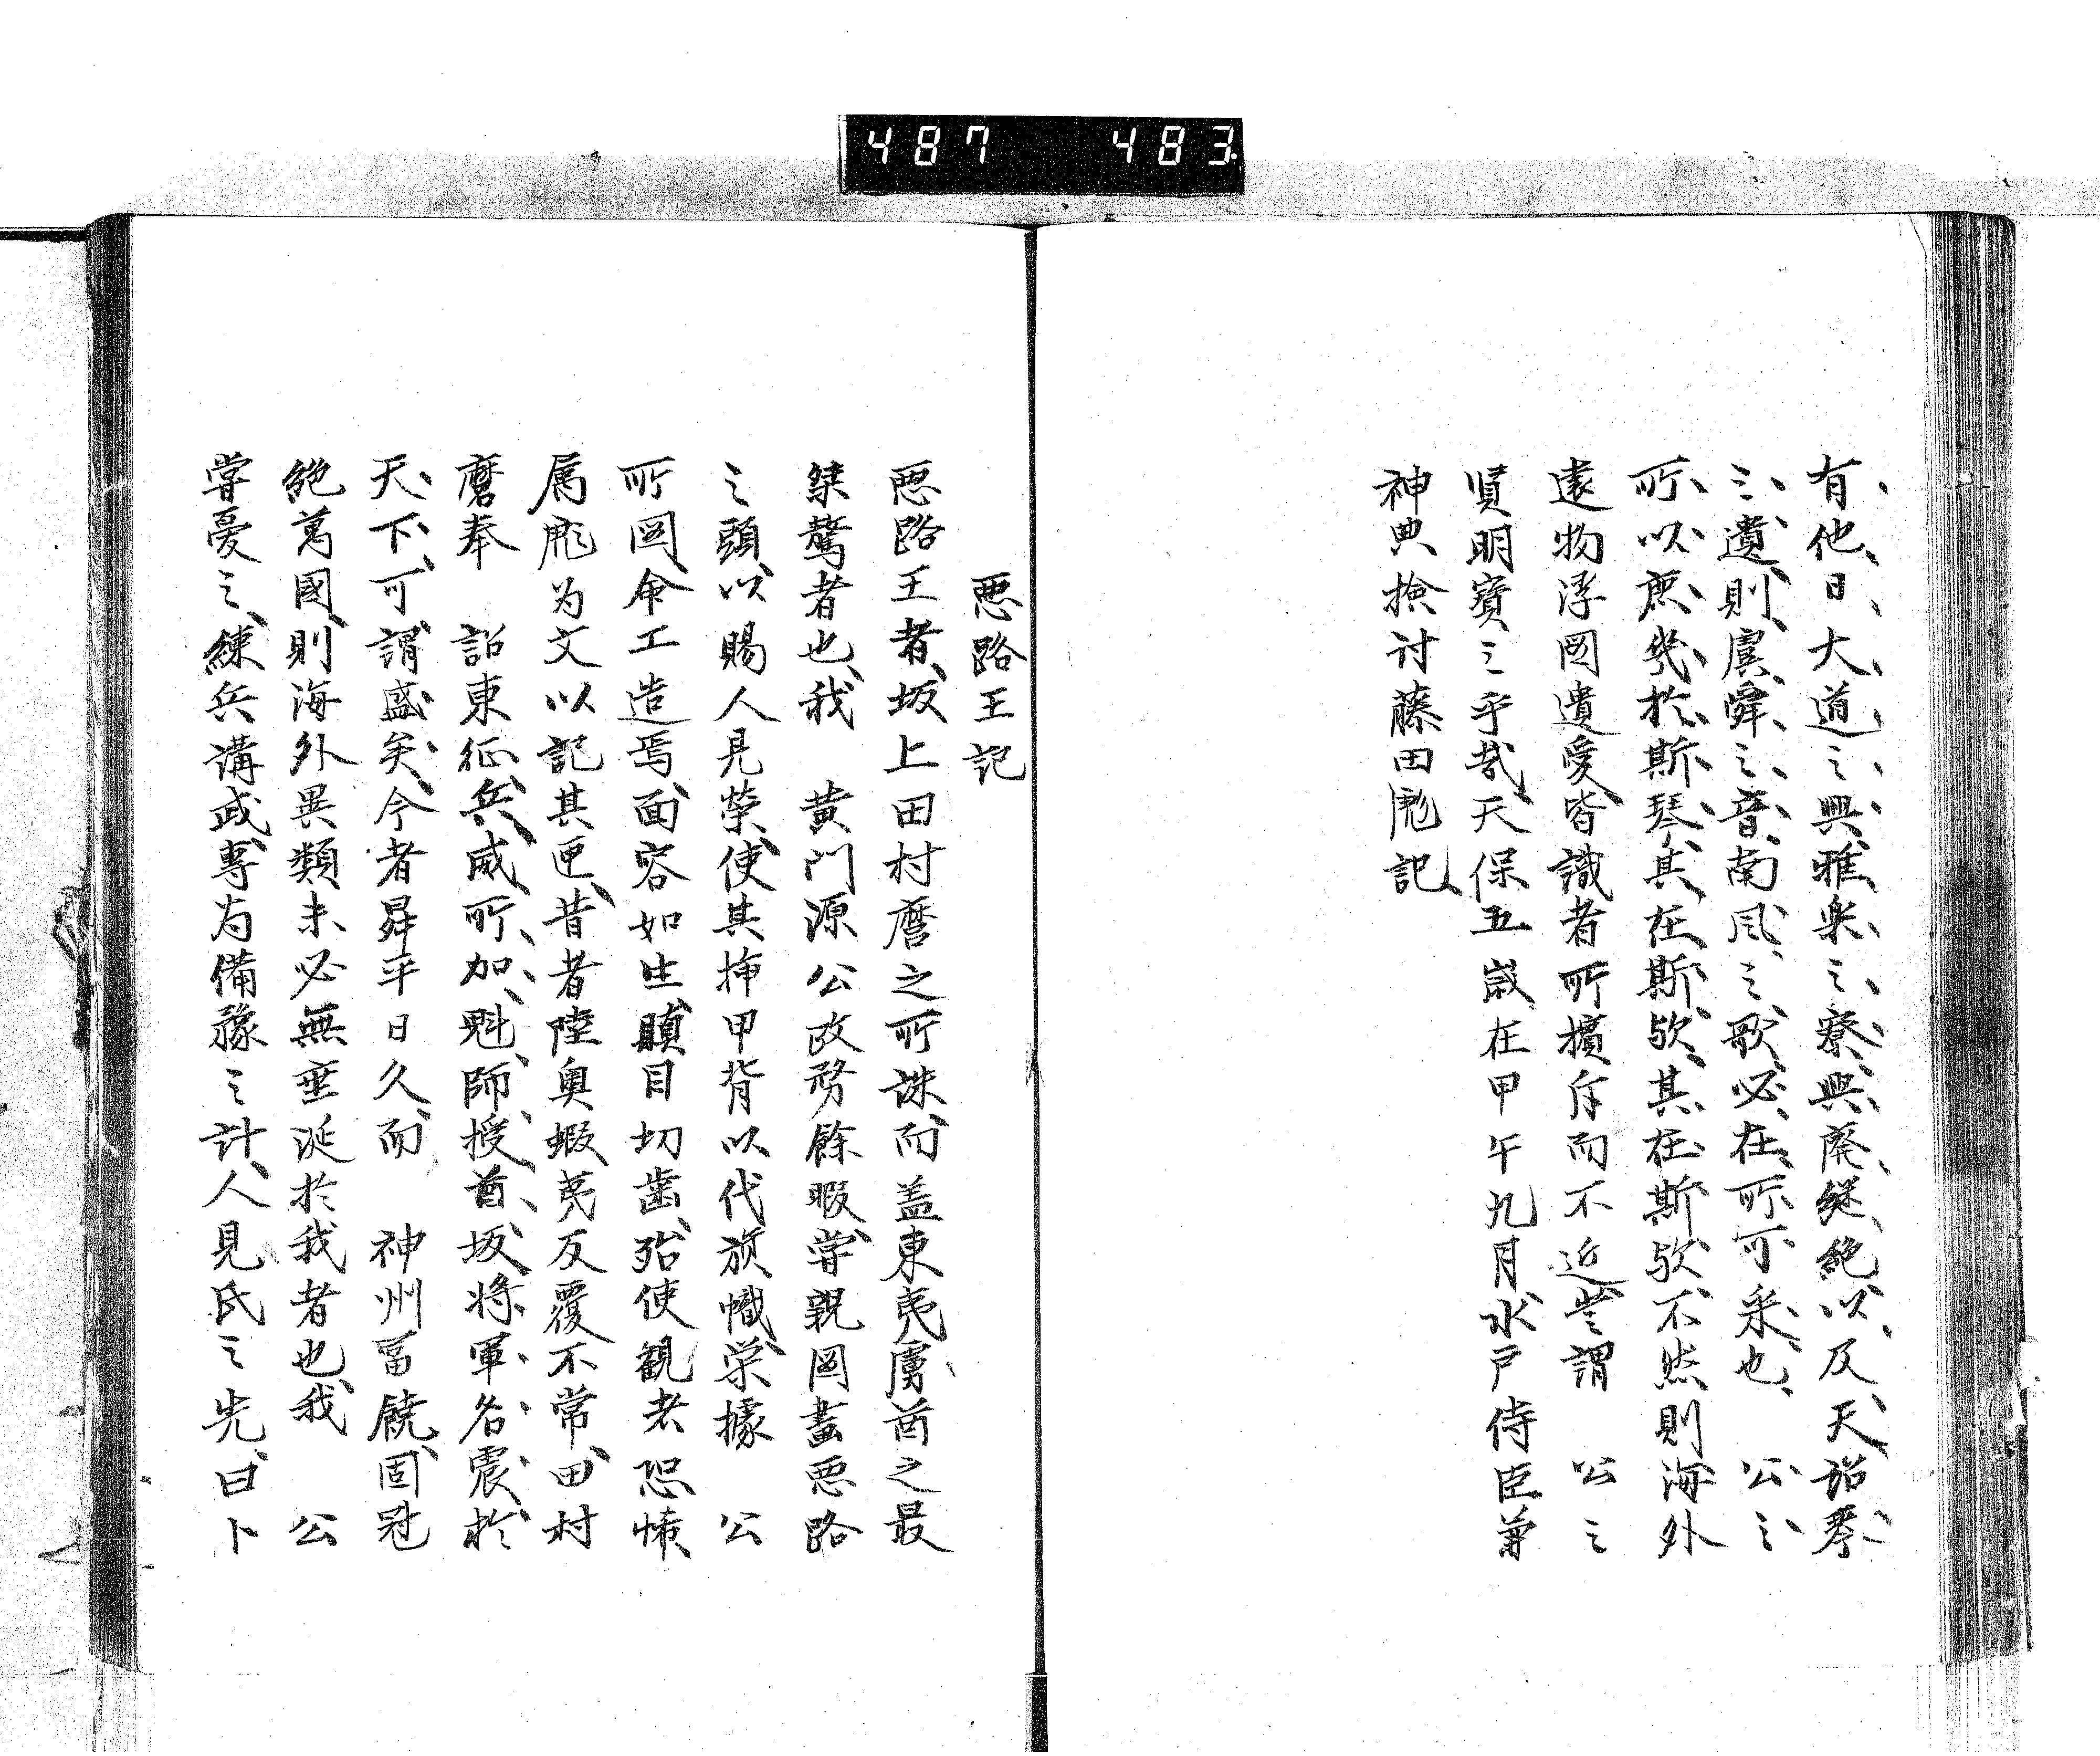 487 483
有他日大道之興雅楽之寮興廃継絶以及天詔琴
之遺則虞舜之音南風之歌必在所可采也　公之
所以庶幾於斯琴其在斯歟其在斯歟不然則海外
遠物浮図遺愛皆識者所擯斥而不近豈謂　公之
賢明寶之乎哉天保五歳在甲午九月水戸侍臣兼
神典撿討藤田彪記
悪路王記
悪路王者坂上田村麿之所誅而盖東夷虜酋之最
桀驁者也我　黄門源公政務餘暇嘗親図畫悪路
之頭以賜人見榮使其挿甲背以代旗幟榮據　公
所図命工造焉面容如生瞋目切歯殆使観者恐悚
属彪為文以記其匣昔者陸奥蝦夷反覆不常田村
麿奉　詔東征兵威所加魁師授首坂将軍名震於
天下可謂盛矣今者昇平日久而　神州冨饒固冠
絶萬國則海外異類未必無垂涎於我者也我　公
嘗憂之練兵講武専为備豫之計人見氏之先曰卜